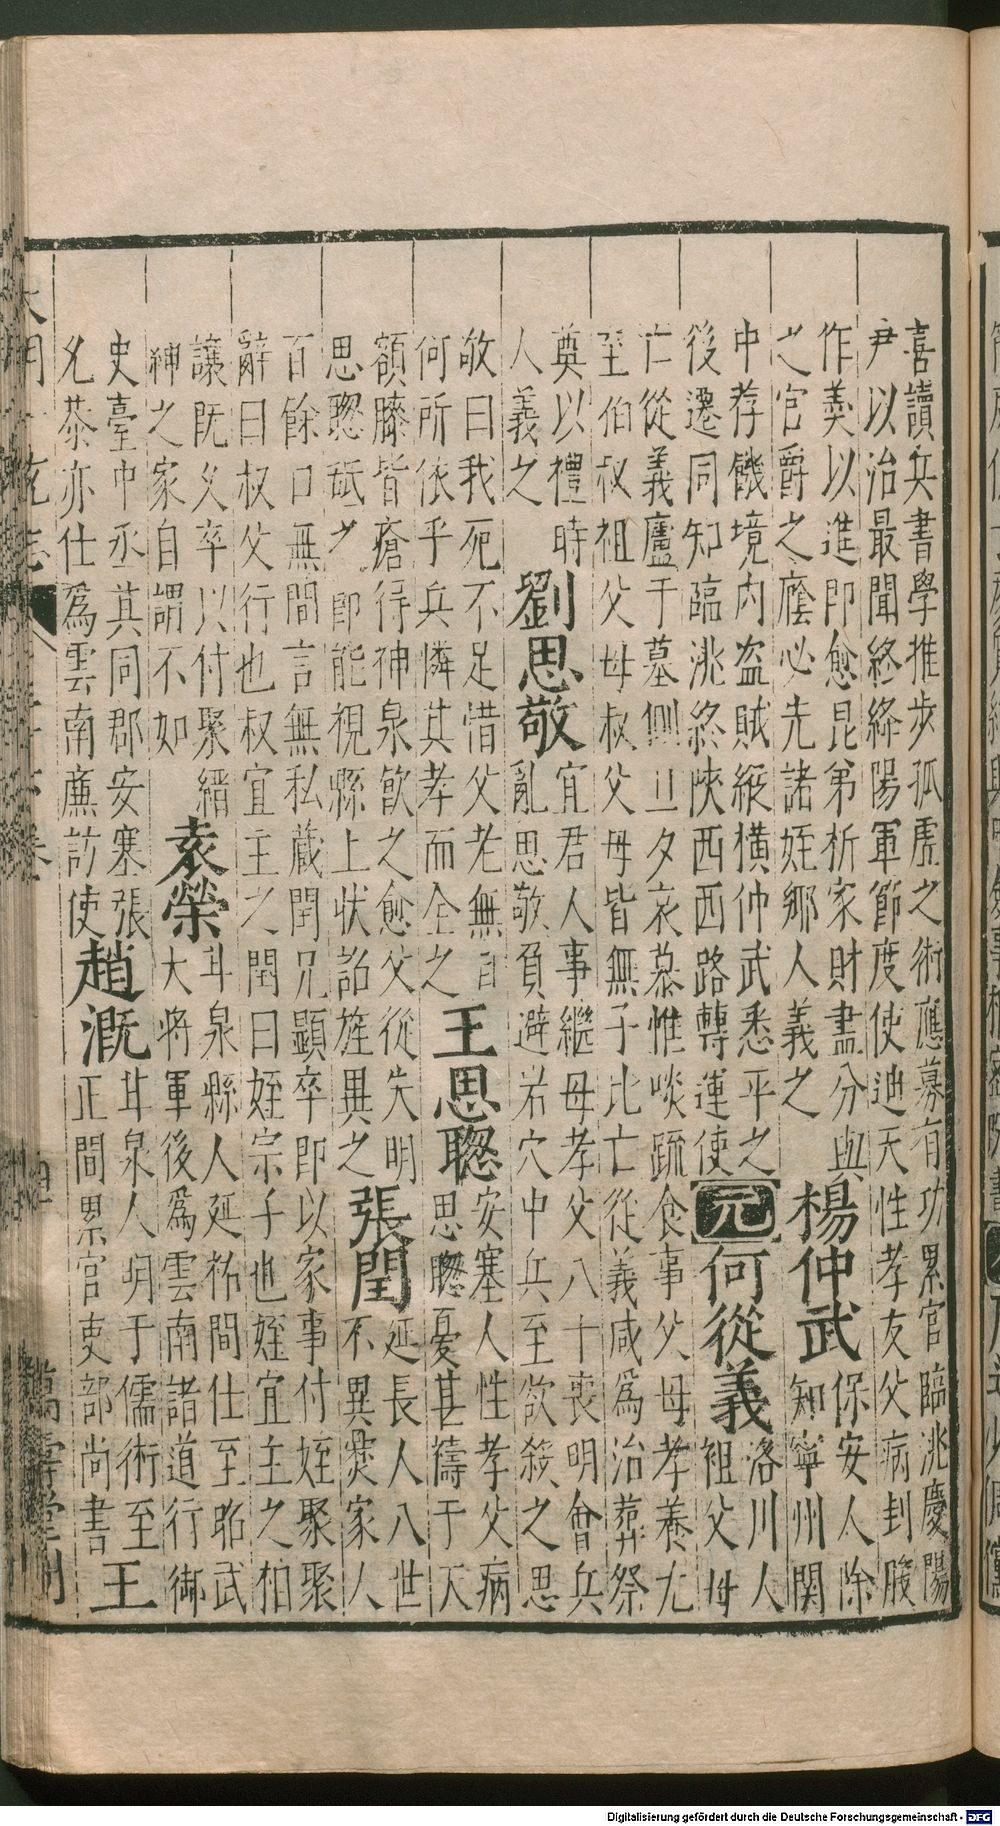 喜讀兵書學推步孤虛之術應募有功累官臨洮慶陽
尹以治最聞終絳陽軍節度使迪天性孝友父病刲股
作羮以進即愈昆弟析家財盡分與楊仲武保安人除
之官爵之廕必先諸姪鄉人義之知寧州関
中荐饑境内盜賊縱橫仲武悉平之元何從義洛川人
後遷同知臨洮終陜西西路轉運使祖父母
亡從義廬于墓側旦夕哀慕惟啖䟽食事父母孝養尤
至伯叔祖父母叔父母皆無子比亡從義咸爲治葬祭
奠以禮時劉思敬宜君人事繼母孝父八十喪明會兵
人義之亂思敬負避岩穴中兵至欲殺之思
敬曰我死不足惜父老無
何所依乎兵憐其孝而全之王思聦安塞人性孝父病
思聦憂甚禱于天
額膝皆瘡得神泉飮之愈父從失明
思聦䑛之即能視縣上狀詔旌異之張閏延長人八世
不異㸑家人
百餘口無間言無私藏閏兄顯卒即以家事付姪聚聚
辭曰叔父行也叔宜主之閏曰姪宗子也姪宜主之相
讓既乆卒以付聚縉
紳之家自謂不如袁榮甘泉縣人延祐間仕至昭武
大將軍後爲雲南諸道行御
史臺中丞其同郡安塞張
乆恭亦仕爲雲南廉訪使趙漑甘泉人明于儒術至
正間累官吏部尚書王
大明一統志
萬壽堂刊
Digitalisierung gefördert durch die Deutsche Forschungsgemeinschaft - DFG